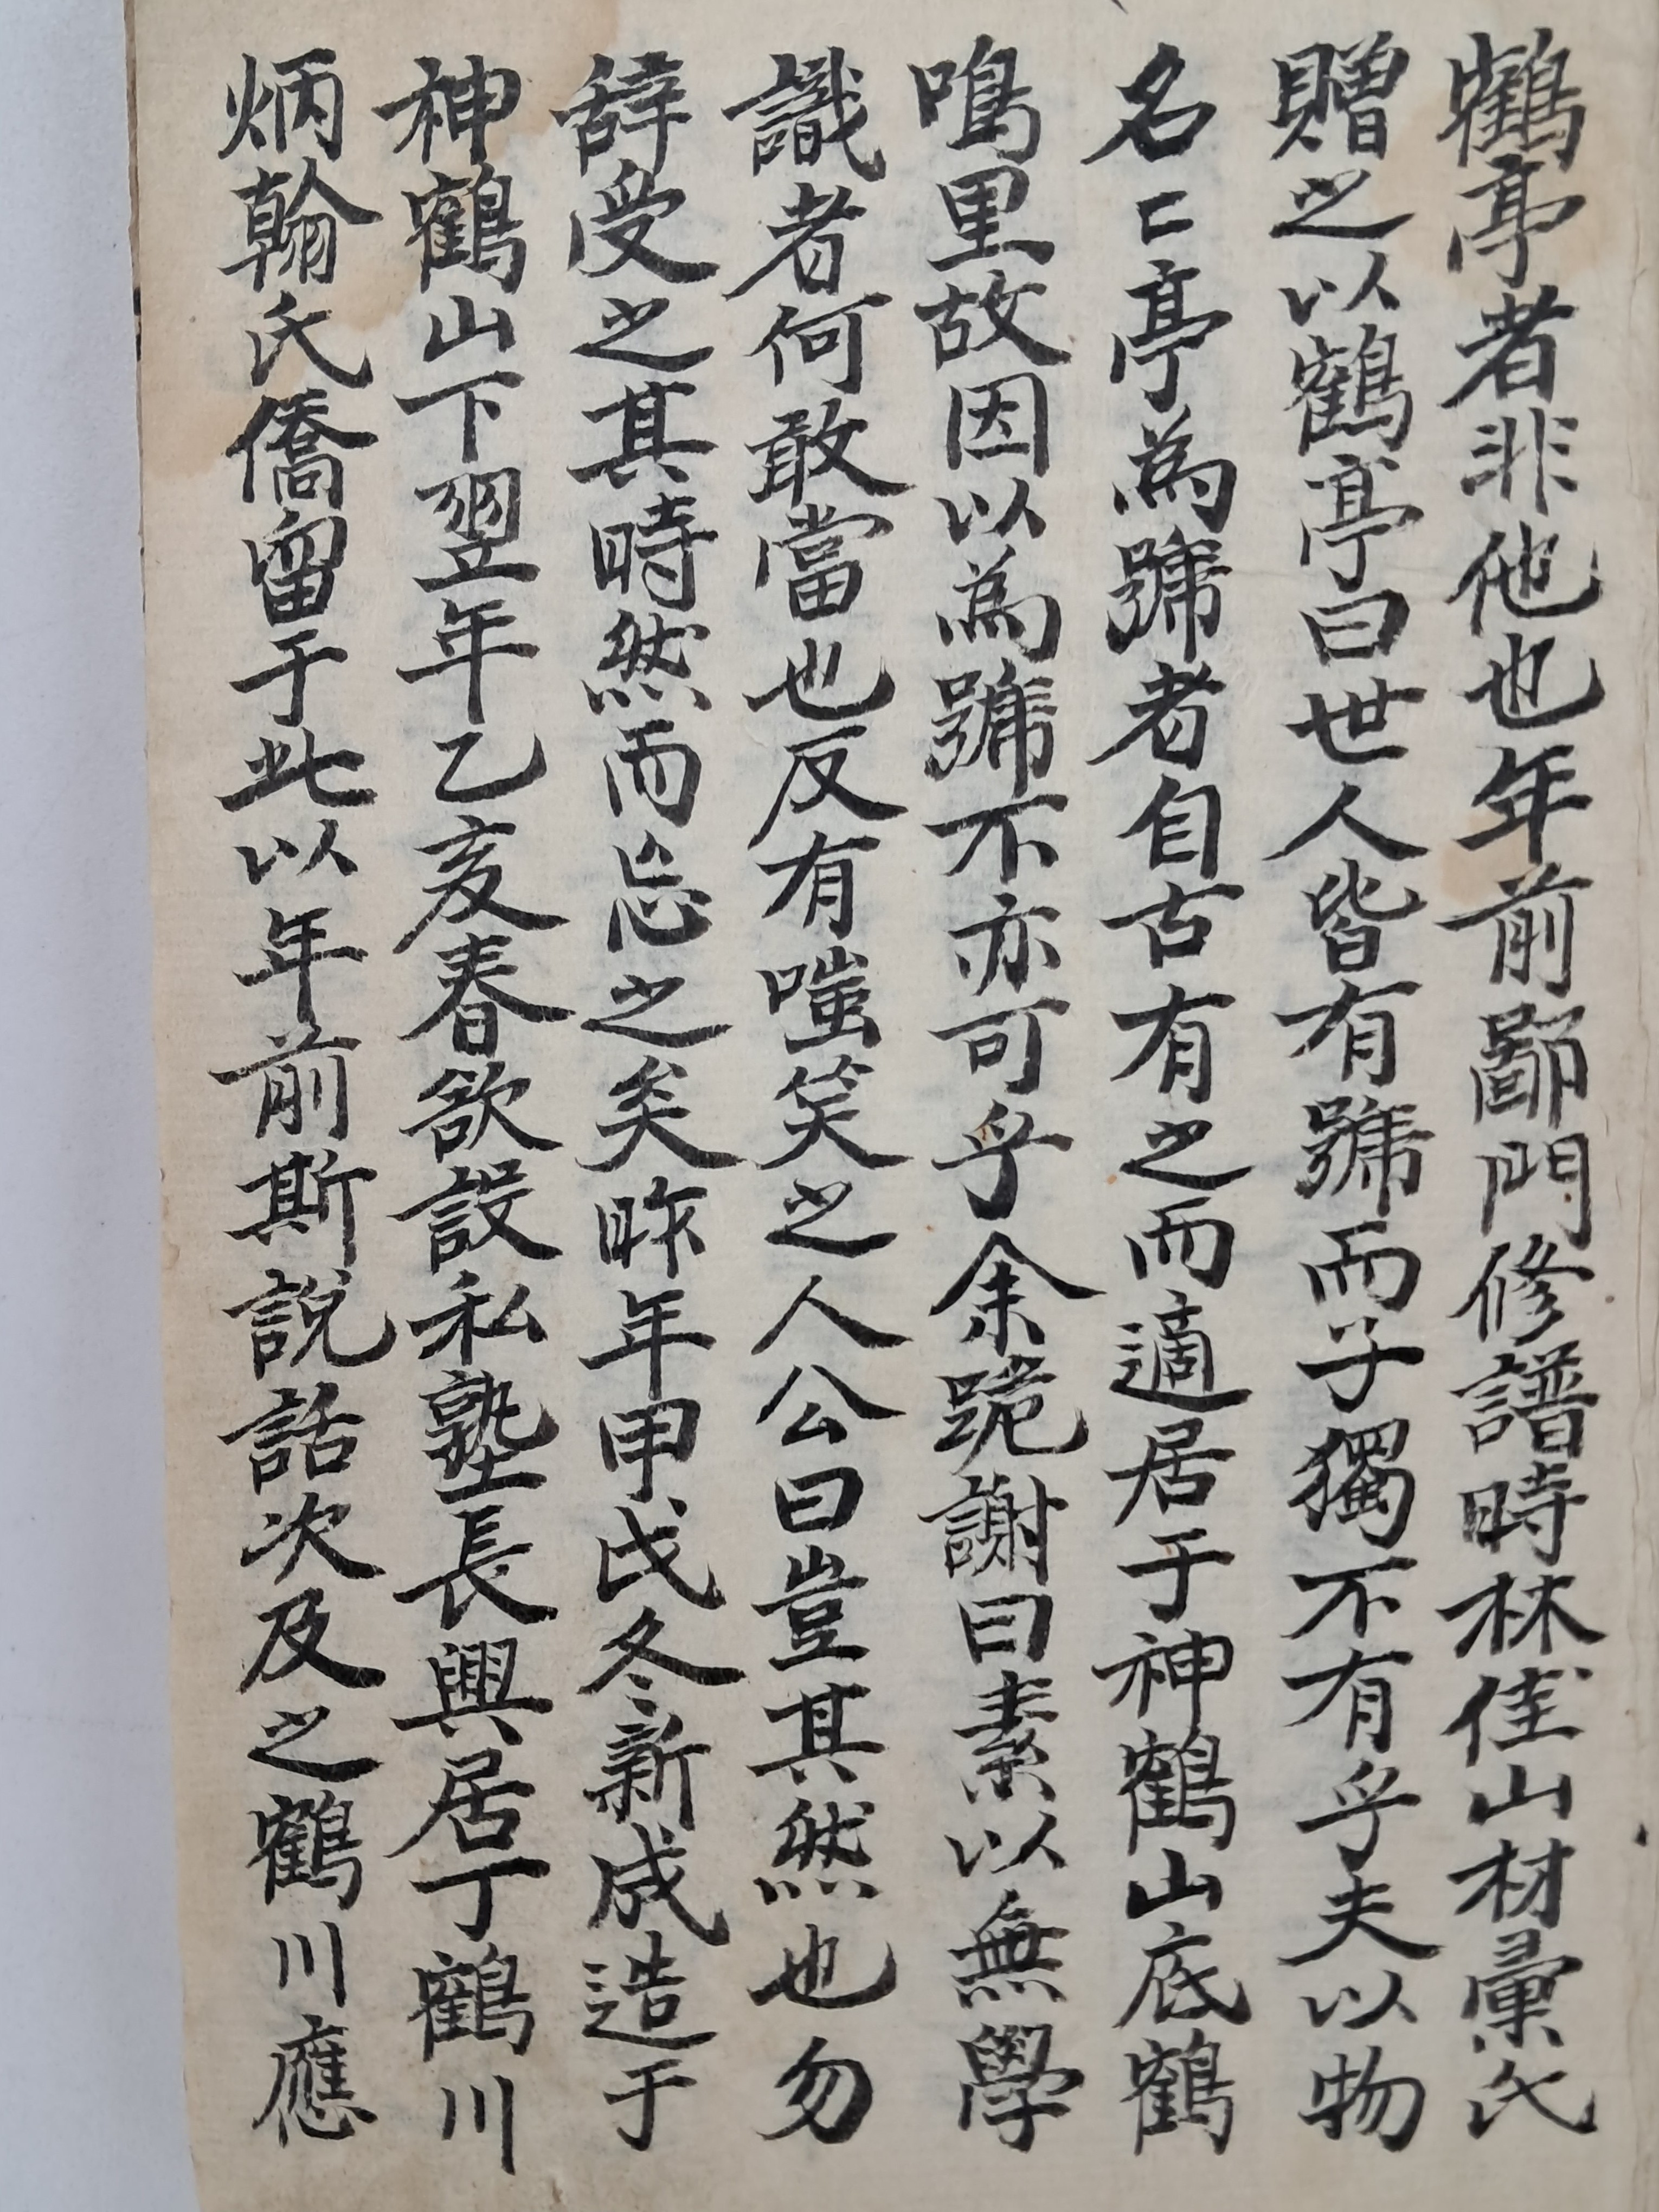 鶴亭者非他也年前鄙門修譜時林佳山材彙氏
贈之以鶴亭曰世人皆有號而子獨不有乎夫以物
名亡亭為號者自古有之而適居于神鶴山底鶴
鳴里故因以為號不亦可乎余跪謝曰素以無學
識者何敢當也反有嗤笑之人公曰豈其然也勿
辞受之其時然而忘之矣昨年甲戌冬新成造于
神鶴山下翌年乙亥春欲設私塾長興居丁鶴川
炳翰氏僑留于此以年前斯說話次及之鶴川應